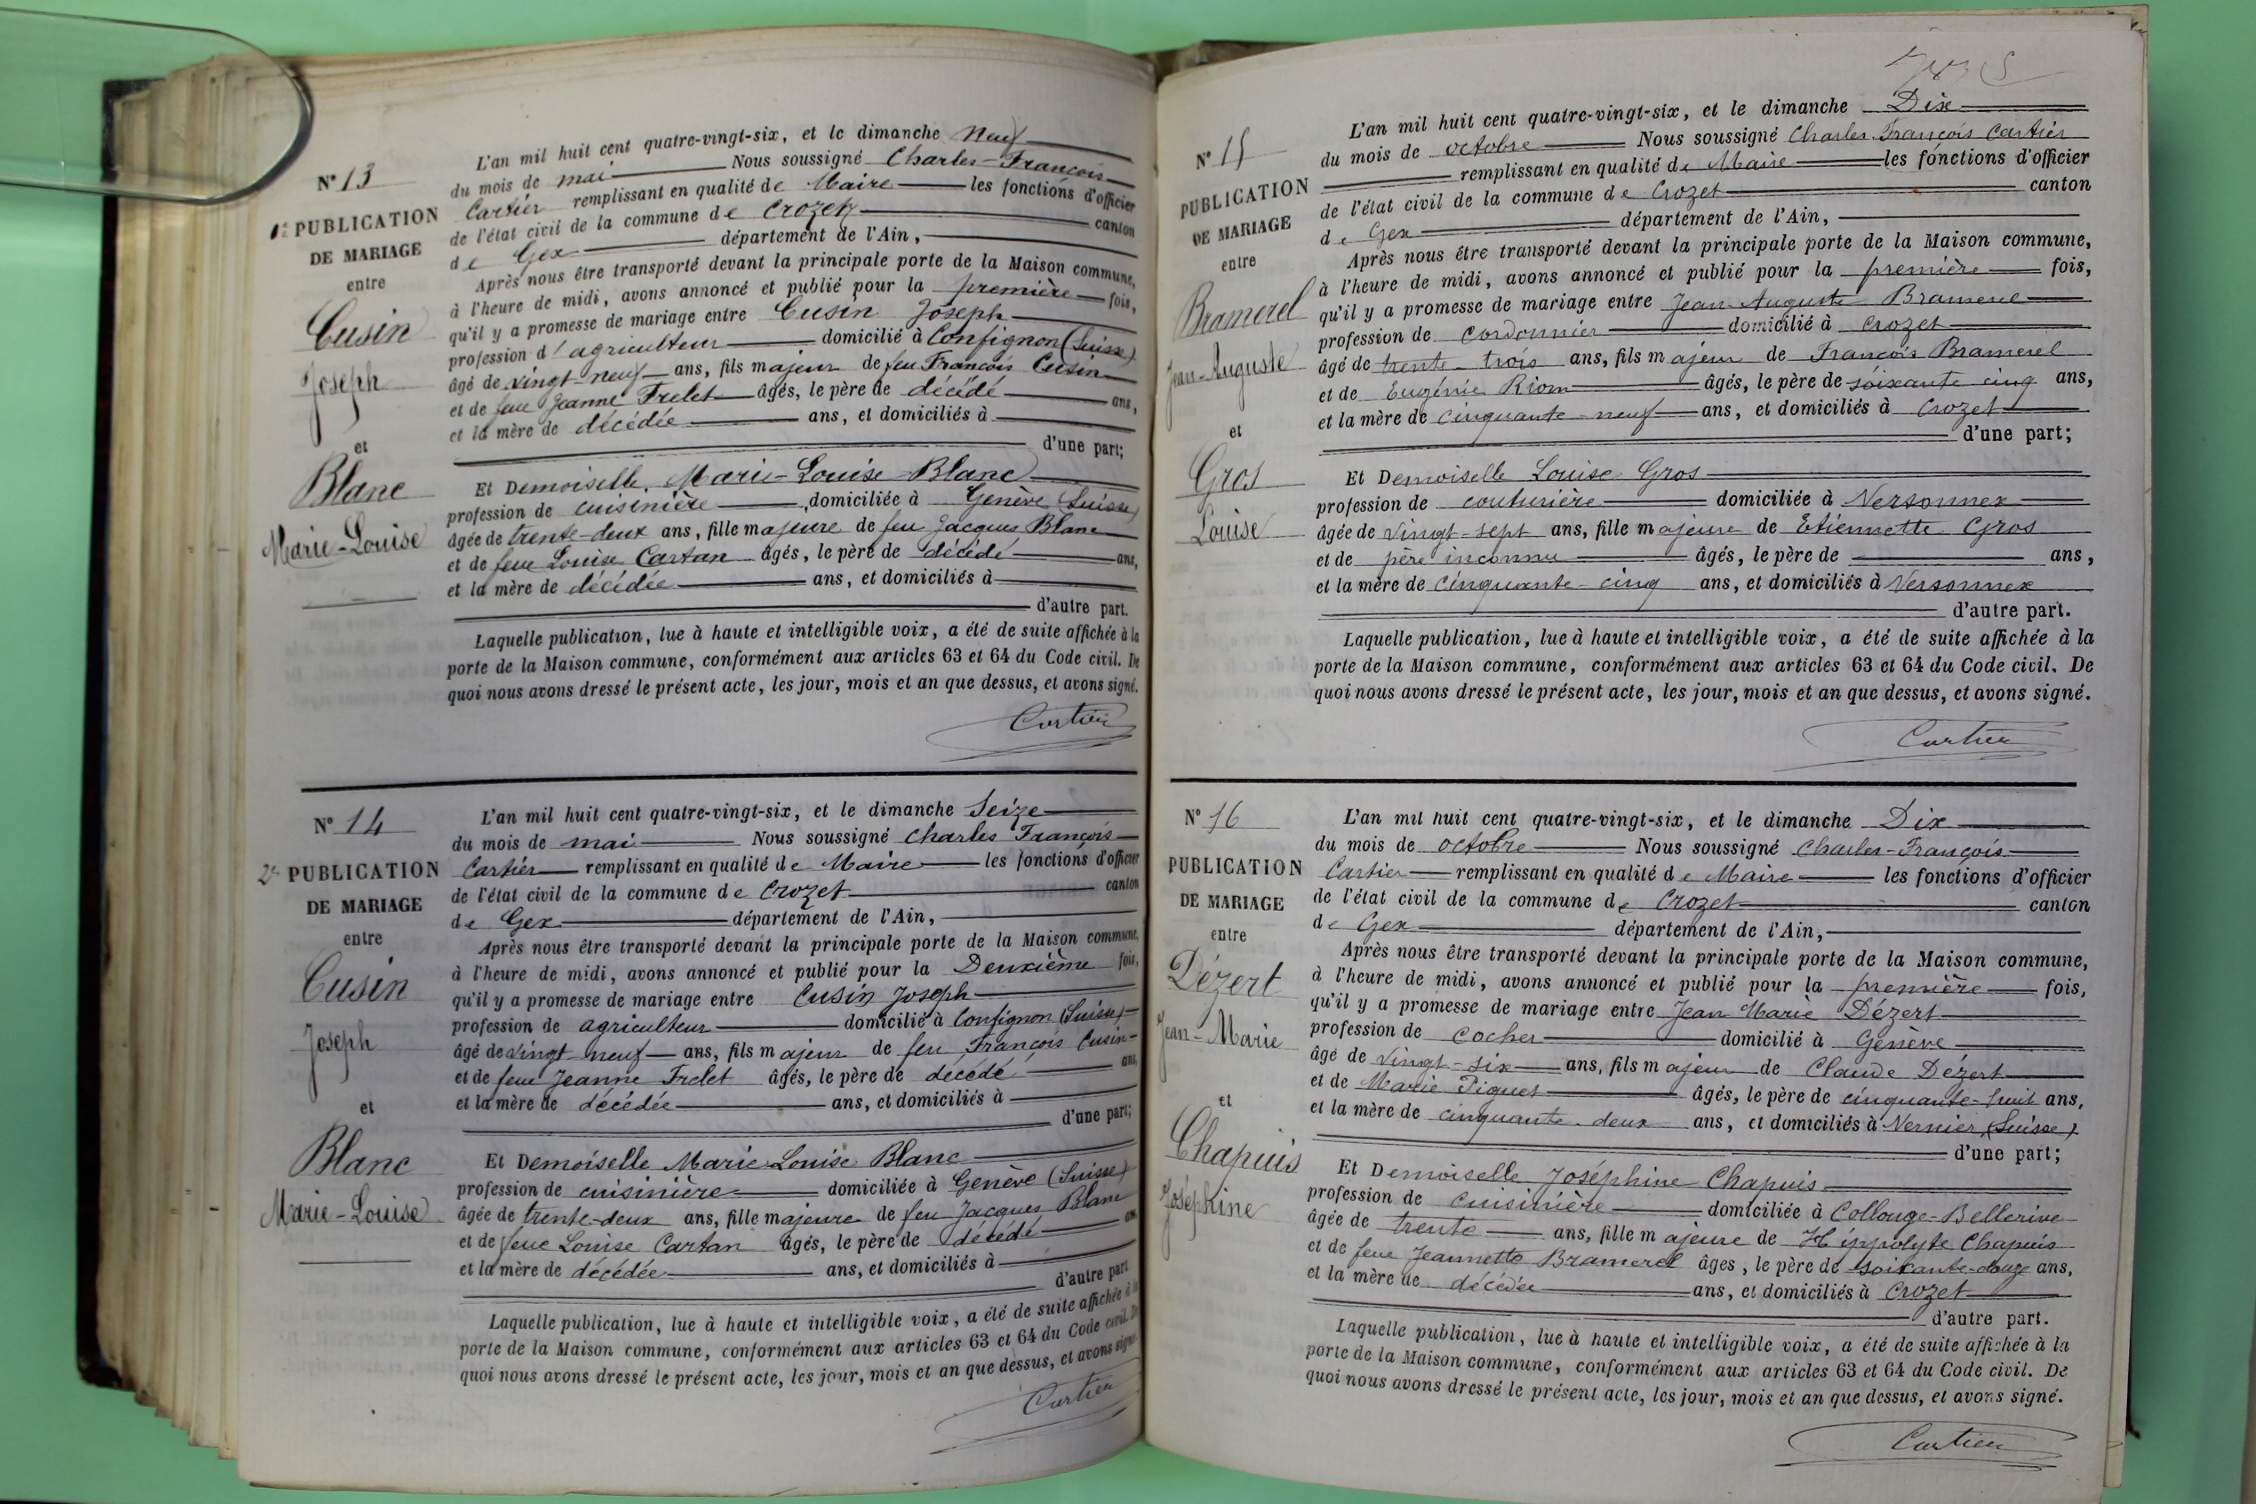 N° 13
1re PUBLICATION
DE MARIAGE
entre
Cusin
Joseph
et
Blanc
Marie-Louise
L'an mil huit cent quatre-vingt-six, et le dimanche Neuf
du mois de mai Nous soussigné Charles-François
Cartier remplissant en qualité de Maire les fonctions d'officier
de l'état civil de la commune de Crozet canton
de Gex département de l'Ain,
Après nous être transporté devant la principale porte de la Maison commune,
à l'heure de midi, avons annoncé et publié pour la première fois,
qu'il y a promesse de mariage entre Cusin Joseph
profession d'agriculteur domicilié à Confignon (Suisse)
âgé de vingt-neuf ans, fils majeur de feu François Cusin
et de feue Jeanne Frelet âgés, le père de décédé ans,
et la mère de décédée ans, et domiciliés à
d'une part;
Et Demoiselle Marie-Louise Blanc
profession de cuisinière domiciliée à Genève (Suisse)
âgée de trente-deux ans, fille majeure de feu Jacques Blanc
et de feue Louise Cartan âgés, le père de décédé ans,
et la mère de décédée ans, et domiciliés à
d'autre part.
Laquelle publication, lue à haute et intelligible voix, a été de suite affichée à la
porte de la Maison commune, conformément aux articles 63 et 64 du Code civil. De
quoi nous avons dressé le présent acte, les jour, mois et an que dessus, et avons signé.
Cartier
N° 14
2e PUBLICATION
DE MARIAGE
entre
Cusin
Joseph
et
Blanc
Marie-Louise
L'an mil huit cent quatre-vingt-six, et le dimanche Seize
du mois de mai Nous soussigné Charles François
Cartier remplissant en qualité de Maire les fonctions d'officier
de l'état civil de la commune de Crozet canton
de Gex département de l'Ain,
Après nous être transporté devant la principale porte de la Maison commune,
à l'heure de midi, avons annoncé et publié pour la Deuxième fois,
qu'il y a promesse de mariage entre Cusin Joseph
profession de agriculteur domicilié à Confignon (Suisse)
âgé de vingt neuf ans, fils majeur de feu François Cusin
et de feue Jeanne Frelet âgés, le père de décédé ans,
et la mère de décédée ans, et domiciliés à
d'une part;
Et Demoiselle Marie-Louise Blanc
profession de cuisinière domiciliée à Genève (Suisse)
âgée de trente-deux ans, fille majeure de feu Jacques Blanc
et de feue Louise Cartan âgés, le père de décédé ans,
et la mère de décédée ans, et domiciliés à
d'autre part
Laquelle publication, lue à haute et intelligible voix, a été de suite affichée à la
porte de la Maison commune, conformément aux articles 63 et 64 du Code civil. De
quoi nous avons dressé le présent acte, les jour, mois et an que dessus, et avons signé.
Cartier
N° 15
PUBLICATION
DE MARIAGE
entre
Bramerel
Jean-Auguste
et
Gros
Louise
L'an mil huit cent quatre-vingt-six, et le dimanche Dix
du mois de octobre Nous soussigné Charles François Cartier
remplissant en qualité de Maire les fonctions d'officier
de l'état civil de la commune de Crozet canton
de Gex département de l'Ain,
Après nous être transporté devant la principale porte de la Maison commune,
à l'heure de midi, avons annoncé et publié pour la première fois,
qu'il y a promesse de mariage entre Jean-Auguste Bramerel
profession de cordonnier domicilié à Crozet
âgé de trente-trois ans, fils majeur de François Bramerel
et de Eugénie Riom âgés, le père de soixante cinq ans,
et la mère de cinquante-neuf ans, et domiciliés à Crozet
d'une part;
Et Demoiselle Louise Gros
profession de couturière domiciliée à Versonnex
âgée de vingt-sept ans, fille majeure de Etiennette Gros
et de père inconnu âgés, le père de ans,
et la mère de cinquante-cinq ans, et domiciliés à Versonnex
d'autre part.
Laquelle publication, lue à haute et intelligible voix, a été de suite affichée à la
porte de la Maison commune, conformément aux articles 63 et 64 du Code civil. De
quoi nous avons dressé le présent acte, les jour, mois et an que dessus, et avons signé.
Cartier
N° 16
PUBLICATION
DE MARIAGE
entre
Dézert
Jean-Marie
et
Chapuis
Joséphine
L'an mil huit cent quatre-vingt-six, et le dimanche Dix
du mois de octobre Nous soussigné Charles-François
Cartier remplissant en qualité de Maire les fonctions d'officier
de l'état civil de la commune de Crozet canton
de Gex département de l'Ain,
Après nous être transporté devant la principale porte de la Maison commune,
à l'heure de midi, avons annoncé et publié pour la première fois,
qu'il y a promesse de mariage entre Jean Marie Dézert
profession de cocher domicilié à Genève
âgé de vingt-six ans, fils majeur de Claude Dézert
et de Marie Piguet âgés, le père de cinquante-huit ans,
et la mère de cinquante-deux ans, et domiciliés à Vernier (Suisse)
d'une part;
Et Demoiselle Joséphine Chapuis
profession de cuisinière domiciliée à Collonge-Bellerive
âgée de trente ans, fille majeure de Hippolyte Chapuis
et de feue Jeannette Bramerel âges, le père de soixante-douze ans,
et la mère de décédée ans, et domiciliés à Crozet
d'autre part.
Laquelle publication, lue à haute et intelligible voix, a été de suite affichée à la
porte de la Maison commune, conformément aux articles 63 et 64 du Code civil. De
quoi nous avons dressé le présent acte, les jour, mois et an que dessus, et avons signé.
Cartier